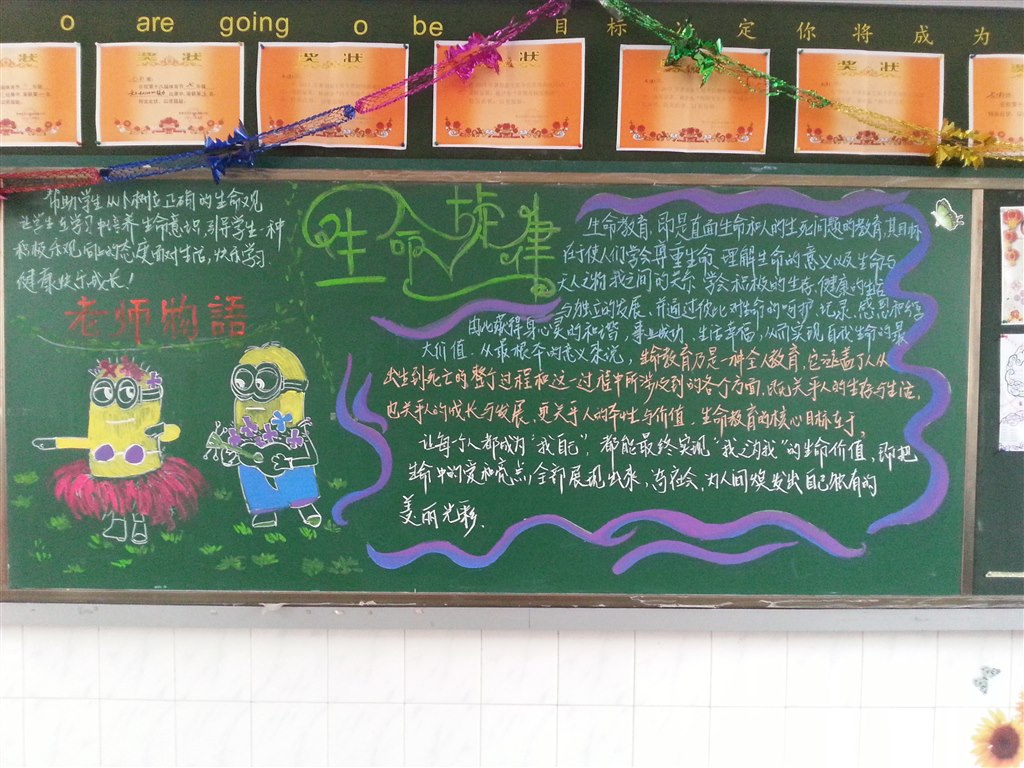 o are going o be 目标 定你将成为
奖状
奖状
奖状
奖状
奖状
奖状
帮助学生从小树立正确的生命观
让学生在学习中培养生命意识,引导学生一种
积极乐观向上的态度面对生活,快乐学习
健康快乐成长!
老师物語
生命旋律
生命教育,即是直面生命和人的生死问题的教育,其目标
在于使人们学会尊重生命、理解生命的意义以及生命与
天人物我之间的关系,学会积极的生存、健康的生活
与独立的发展,并通过彼此对生命的呵护、记录、感恩和分享
由此获得身心灵的和谐,事业成功,生活幸福,从而实现自我生命的最
大价值。从最根本的意义来说,生命教育乃是一种全人教育,它涵盖了人从
出生到死亡的整个过程和这一过程中所涉及到的各个方面,既关乎人的生存与生活,
也关乎人的成长与发展,更关乎人的本性与价值。生命教育的核心目标在于,
让每个人都成为“我自己”,都能最终实现“我之为我”的生命价值,即把
生命中的爱和亮点全部展现出来,为社会,为人间焕发出自己独有的
美丽光彩.